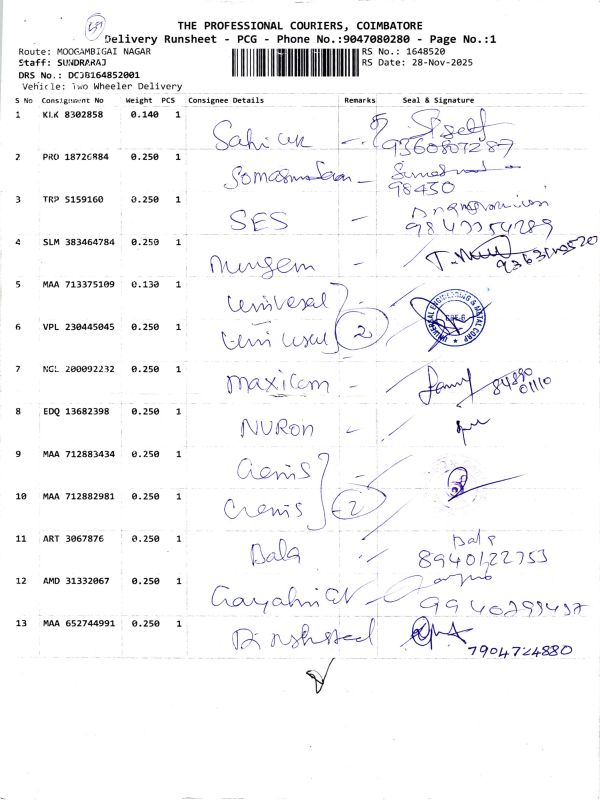 THE PROFESSIONAL COURIERS, COIMBATORE
Delivery Runsheet - PCG - Phone No.:9047080280 - Page No.:1
Route: MOOGAMBIGAI NAGAR
RS No.: 1648520
Staff: SUNDRARAJ
RS Date: 28-Nov-2025
DRS No.: DCJB164852001
Vehicle: Two Wheeler Delivery
S No Consignment No Weight PCS Consignee Details Remarks Seal & Signature
1 KLK 8302858 0.140 1 self
9360807287
2 PRO 18726884 0.250 1
98430
3 TRP 5159160 0.250 1 SES
4 SLM 383464784 0.250 1
5 MAA 713375109 0.130 1 Universal
6 VPL 230445045 0.250 1 Universal 2
UNIVERSAL ENGINEERING & METAL CORP
7 NGL 200092232 0.250 1 maxicom 84890
01110
8 EDQ 13682398 0.250 1 NURON
9 MAA 712883434 0.250 1 Genis
10 MAA 712882981 0.250 1 Genis 2
11 ART 3067876 0.250 1 Bala Bala
8940122753
12 AMD 31332067 0.250 1
13 MAA 652744991 0.250 1
7904724880